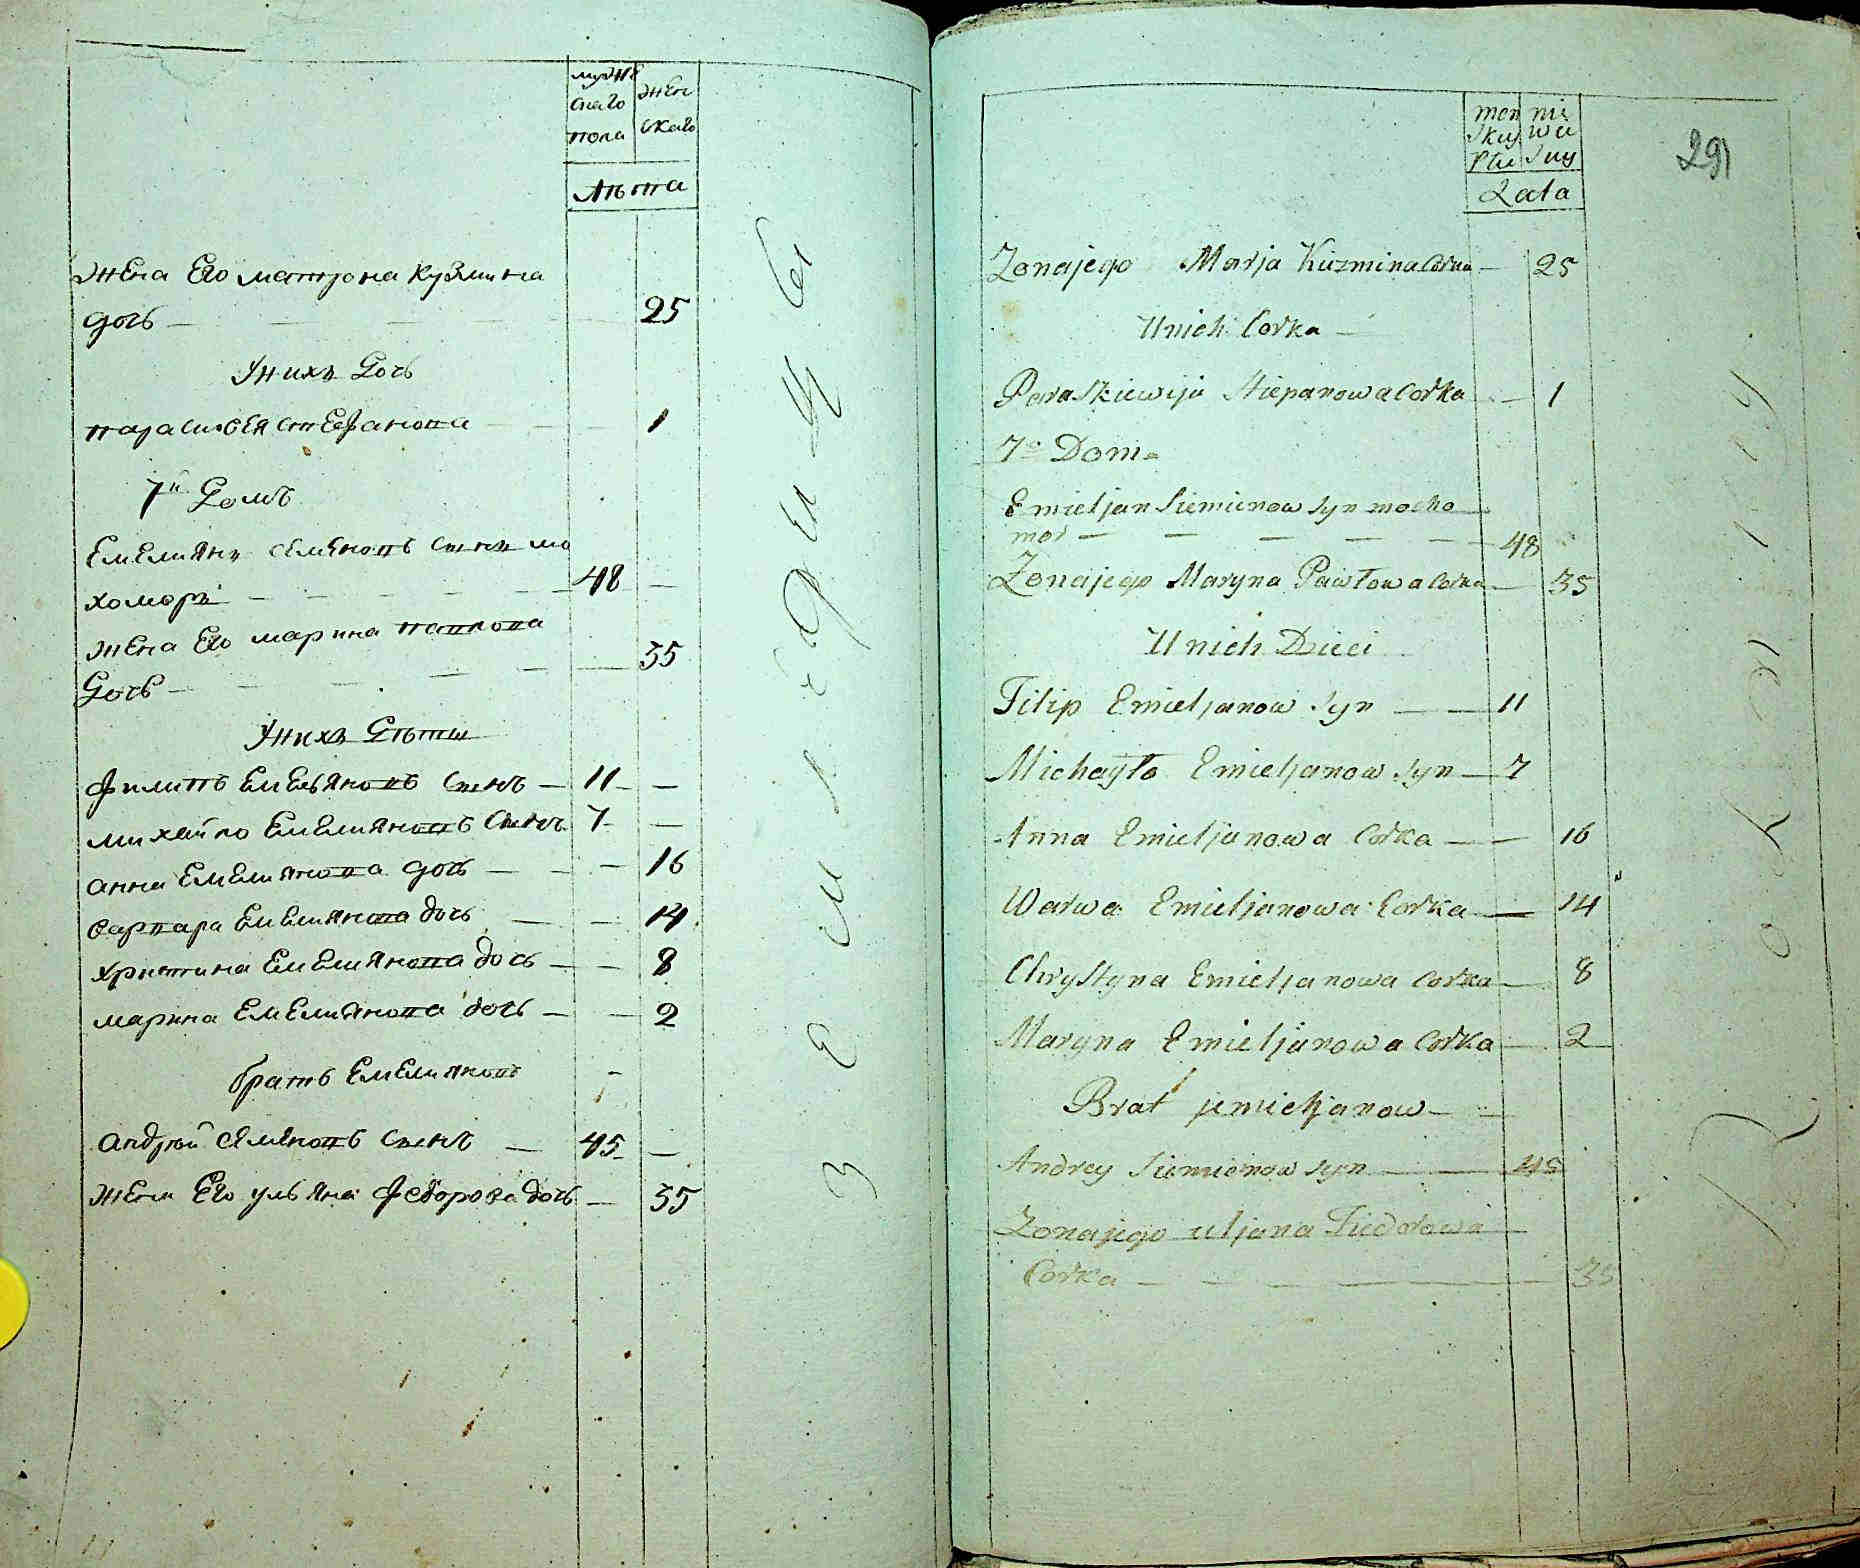 мужe
скаго
пола
жен
скаго
лѣта
жена Его матрона кузмина
дочь — 25
У нихъ Дочь
парасковея стефанова — 1
7й Домъ
Емелиянъ семеновъ сынъ мо
хоморъ — 48 —
жена Его марина павлова
Дочь — 35
У нихъ Дѣти
филипъ Емельяновъ сынъ — 11 —
михайло Емелияновъ сынъ 7 —
анна Емелиянова дочь — 16
варвара Емелиянова дочь — 14
христина Емелиянова дочь — 8
марина Емелиянова дочь — 2
братъ Емелияновъ —
андрѣй семеновъ сынъ — 45 —
жена Его ульяна федорова дочь — 35
291
Lata
Zonajego Marja Kuzmina Corka — 25
U nich Corka —
Paraskiewija Stiepanowa Corka — 1
7o Doma
Emieljan Siemienow syn mocho
mor — 48
Zonajego Maryna Pawłowa Corka — 35
U nich Dzieci
Filip Emieljanow syn — 11
Michayło Emieljanow syn — 7
Anna Emieljanowa Corka — 16
Warwa Emieljanowa Corka — 14
Chrystyna Emieljanowa Corka — 8
Maryna Emieljanowa Corka — 2
Brat jemieljanow —
Andrey Siemienow syn — 45
Zonajego uljana Fiedorowa —
Corka — 35